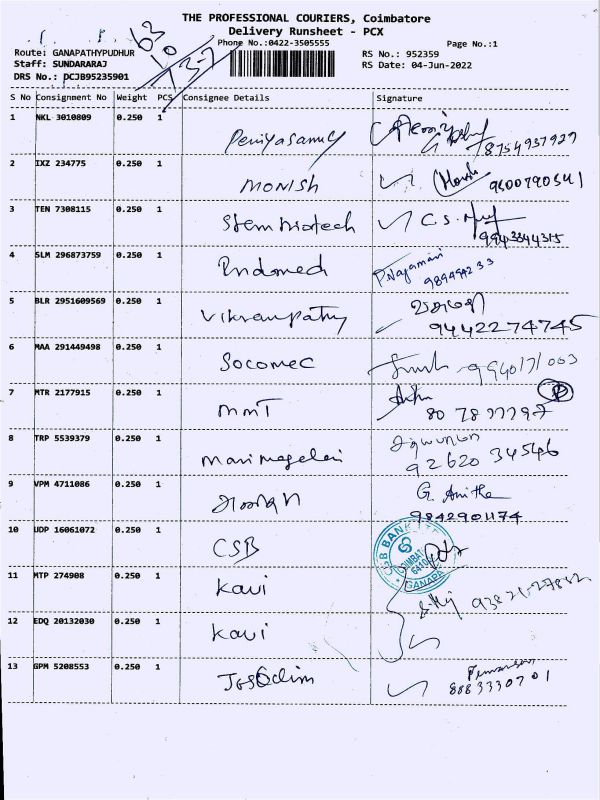 THE PROFESSIONAL COURIERS, Coimbatore
Delivery Runsheet - PCX
Phone No.:0422-3505555
Page No.:1
Route: GANAPATHYPUDHUR
RS No.: 952359
Staff: SUNDARARAJ
RS Date: 04-Jun-2022
DRS No.: PCJB95235901
63
10
73-2
S No Consignment No Weight PCS Consignee Details Signature
1 NKL 3010809 0.250 1 Periyasamy 8754937927
2 IXZ 234775 0.250 1 MONISH
3 TEN 7308115 0.250 1 Stem biotech C.S.
4 SLM 296873759 0.250 1 Indomed P. Nagamani
5 BLR 2951609569 0.250 1 Vikrampathy 9442274745
6 MAA 291449498 0.250 1 Socomec
7 MTR 2177915 0.250 1 MMT
8 TRP 5539379 0.250 1 92620 34546
9 VPM 4711086 0.250 1 G. Anitha
9842901174
10 UDP 16061072 0.250 1 CSB
CSB BANK
COIMBAT
GANAPA
11 MTP 274908 0.250 1 Kavi
12 EDQ 20132030 0.250 1 Kavi
13 GPM 5208553 0.250 1 8883330701